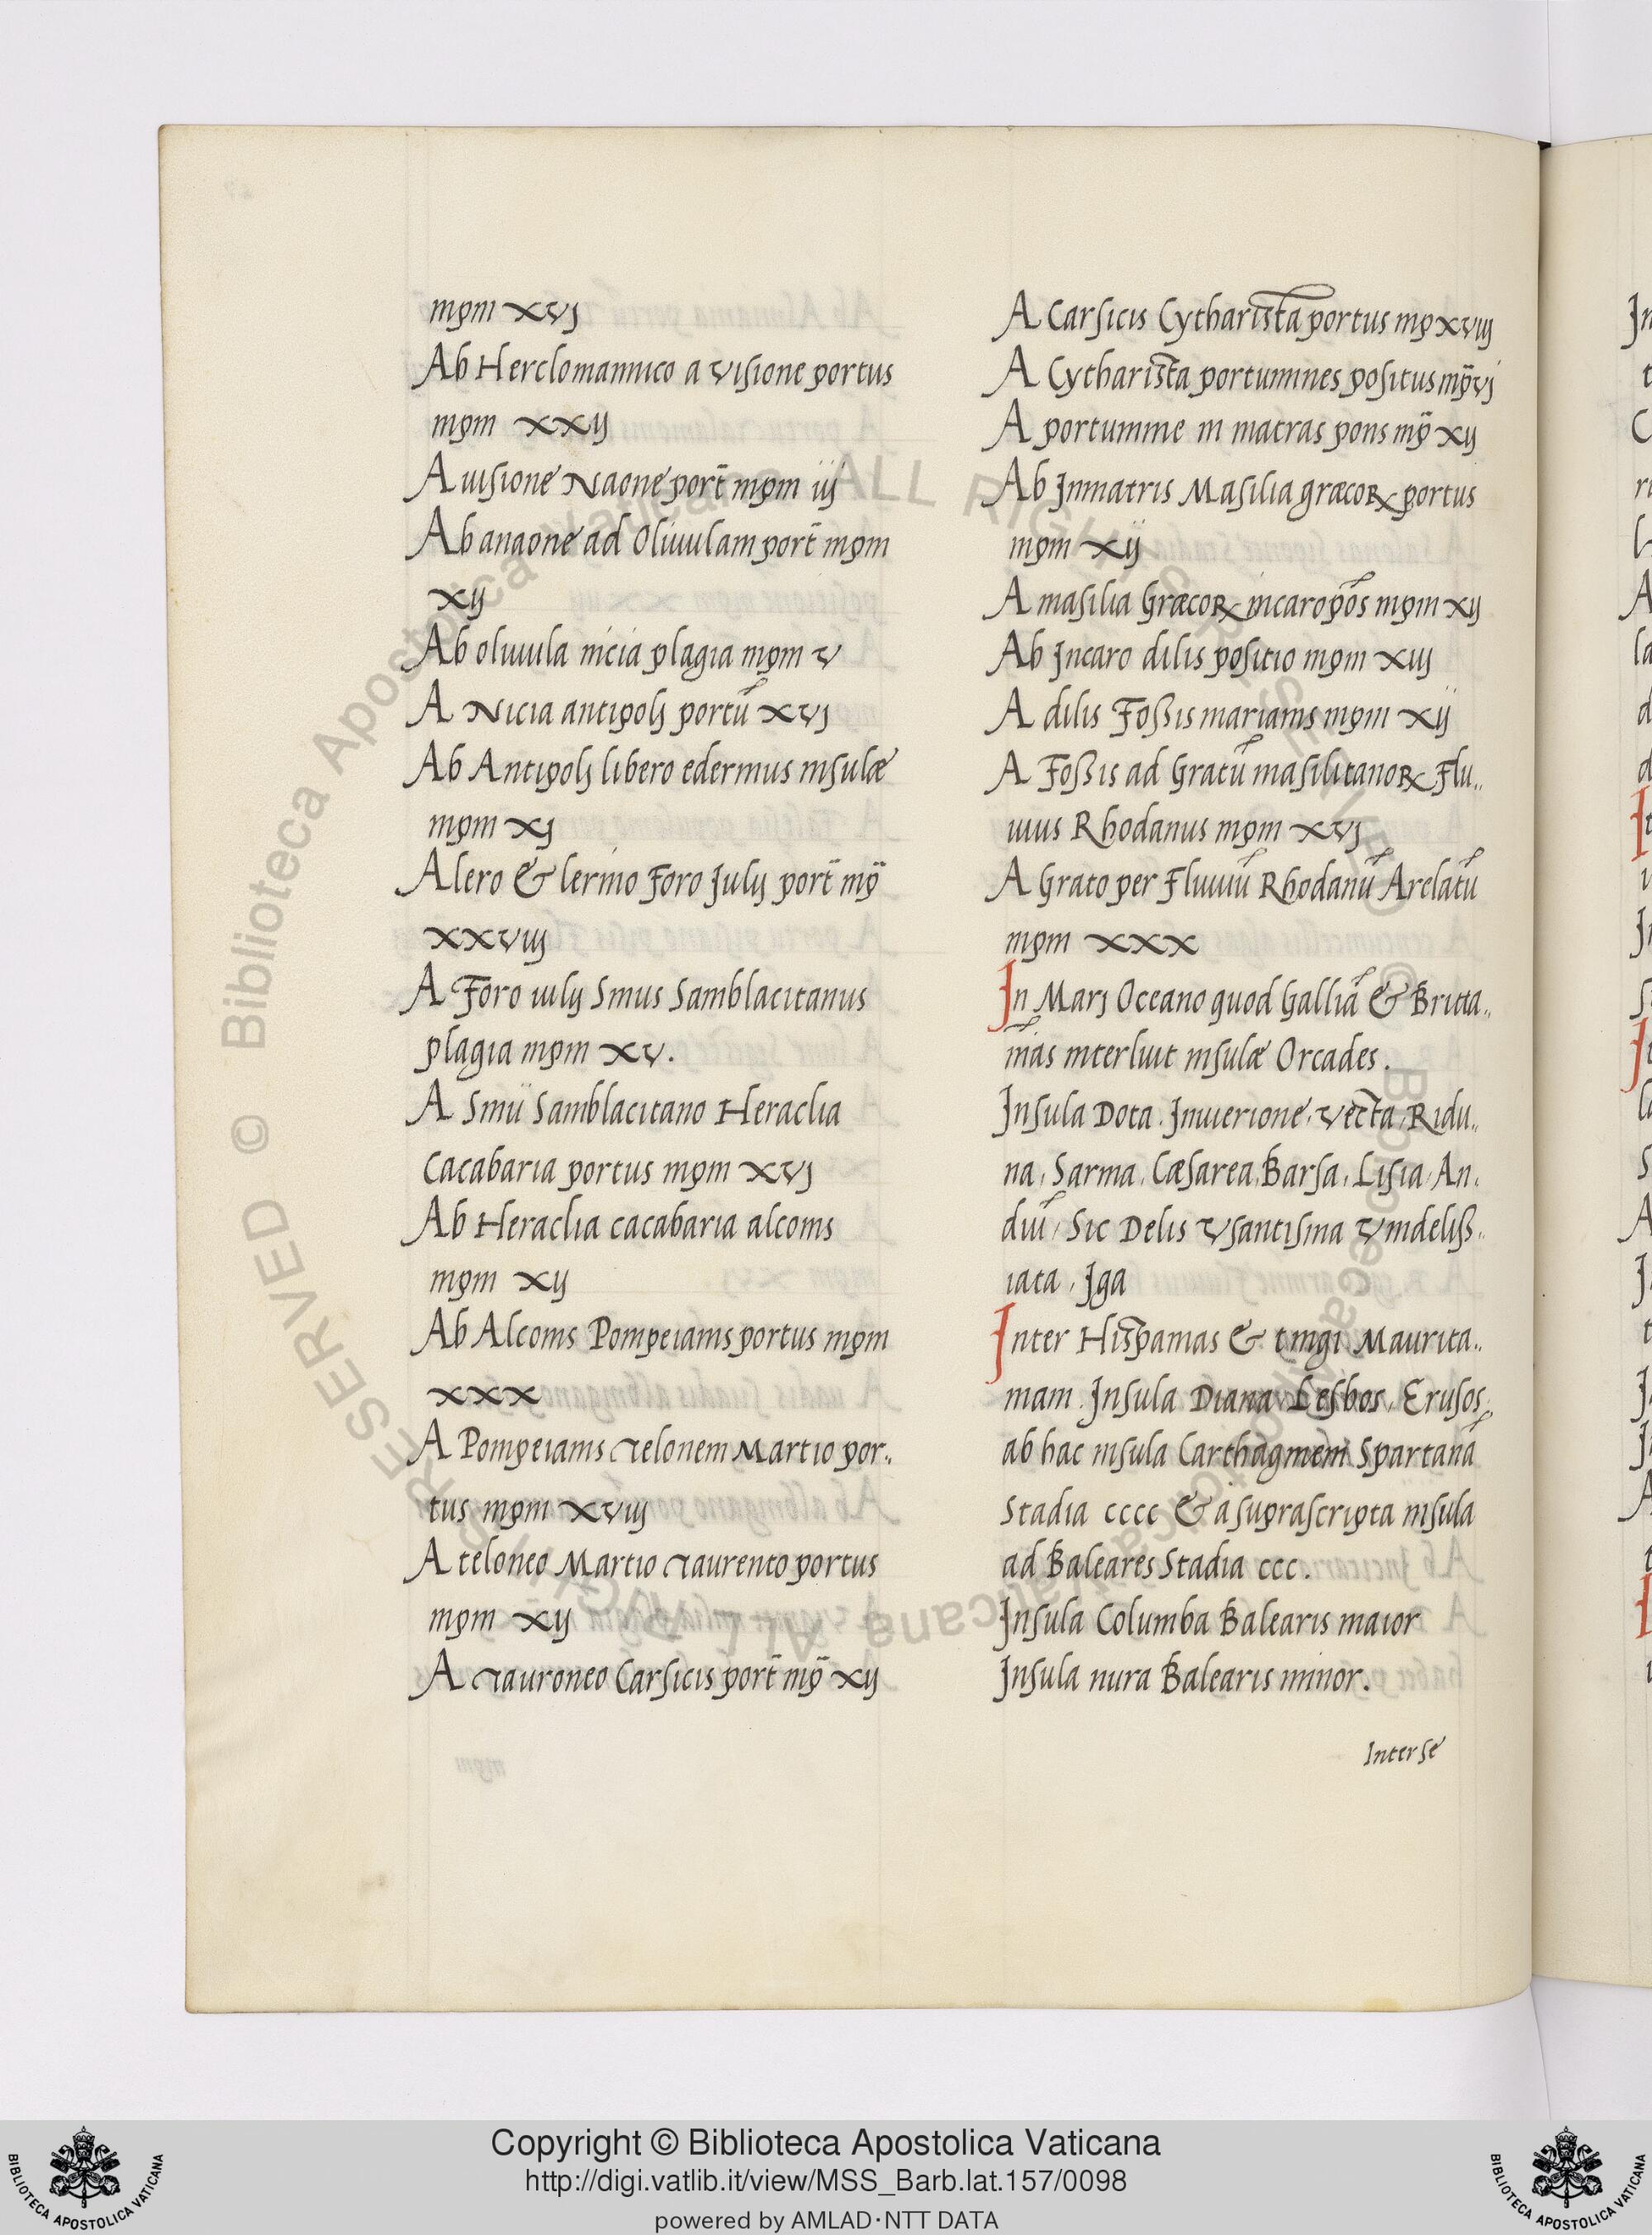 mpm xvj
Ab Herclomannico a visione portus
mpm xxij
A uisione Naone port̄ mpm iij
Ab anaone ad Oliuulam port̄ mpm
xij
Ab oliuula nicia plagia mpm v
A Nicia antipolj portū xvj
Ab Antipolj libero edermus insulæ
mpm xj
A lero & lerino Foro Julij port̄ mp̄
xxviij
A Foro iulij Sinus Samblacitanus
plagia mpm xv.
A Sinu Samblacitano Heraclia
Cacabaria portus mpm xvj
Ab Heraclia cacabaria alconis
mpm xij
Ab Alconis Pompeianis portus mpm
xxx
A Pompeianis Telonem Martio por..
tus mpm xviij
A teloneo Martio Taurento portus
mpm xij
A Tauroneo Carsicis port̄ mp̄ xij
A Carsicis Cytharista portus mp xviij
A Cytharista portumines positus mp̄ vj
A portumine in matras pons mp̄ xij
Ab Jnmatris Masilia græcoꝝ portus
mpm xij
A masilia Græcoꝝ incaro pōs mpm xij
Ab Jncaro dilis positio mpm xiij
A dilis Foßis marianis mpm xij
A Foßis ad Gratū masilitanoꝝ Flu..
uius Rhodanus mpm xvj
A Grato per Fluuiū Rhodanū Arelatū
mpm xxx
Jn Marj Oceano quod Galliā & Britta..
nīas interluit insulæ Orcades.
Jnsula Dota. Jnuierione, vecta, Ridu..
na, Sarma, Cæsarea, Barsa, Lisia, An.
diū, Sic Delis vsantisina vindeliß..
iata, Jga
Jnter Hispanias & tingi Maurita..
niam. Jnsula Diana, Lesbos, Erusos,
ab hac insula Carthaginem Spartanā
Stadia cccc & a suprascripta insula
ad Baleares Stadia ccc.
Jnsula Columba Balearis maior
Jnsula nura Balearis minor.
Inter se
© Biblioteca Apostolica Vaticana ALL RIGHTS RESERVED
Copyright © Biblioteca Apostolica Vaticana
http://digi.vatlib.it/view/MSS_Barb.lat.157/0098
powered by AMLAD·NTT DATA
BIBLIOTECA APOSTOLICA VATICANA
BIBLIOTECA APOSTOLICA VATICANA